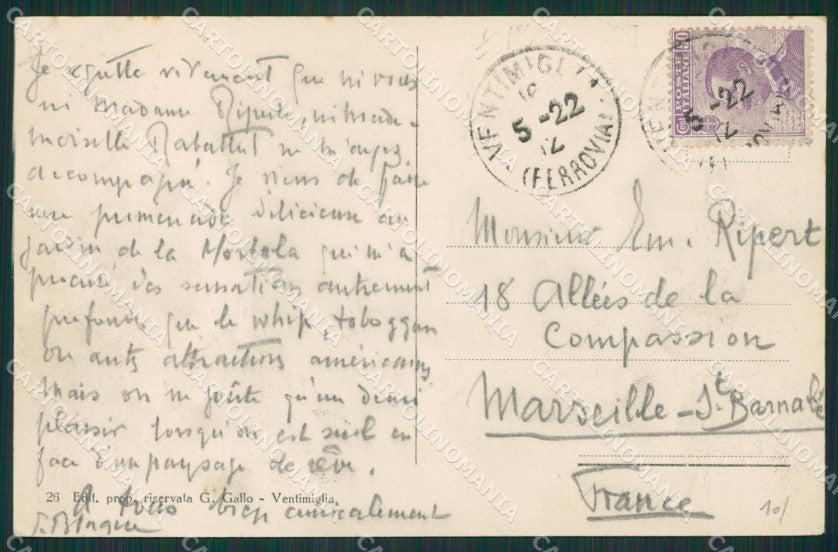 Je regrette vivement que ni vous
ni Madame Ripert, ni made-
moiselle Rabattut ne m'ayez
accompagné. Je viens de faire
une promenade délicieuse au
jardin de la Mortola qui m'a
procuré des sensations autrement
profondes que le whip, toboggan
ou autres attractions américaines
mais on ne goûte qu'un demi
plaisir lorsqu'on est seul en
face d'un paysage de rêve.
26 Edit. prop. riservata G. Gallo - Ventimiglia
A vous bien amicalement
VENTIMIGLIA
5-22
12
(FERROVIA)
5-22
12
50
Monsieur Em. Ripert
18 Allées de la
Compassion
Marseille - St Barnabé
France
10/
CARTOLINOMANIA